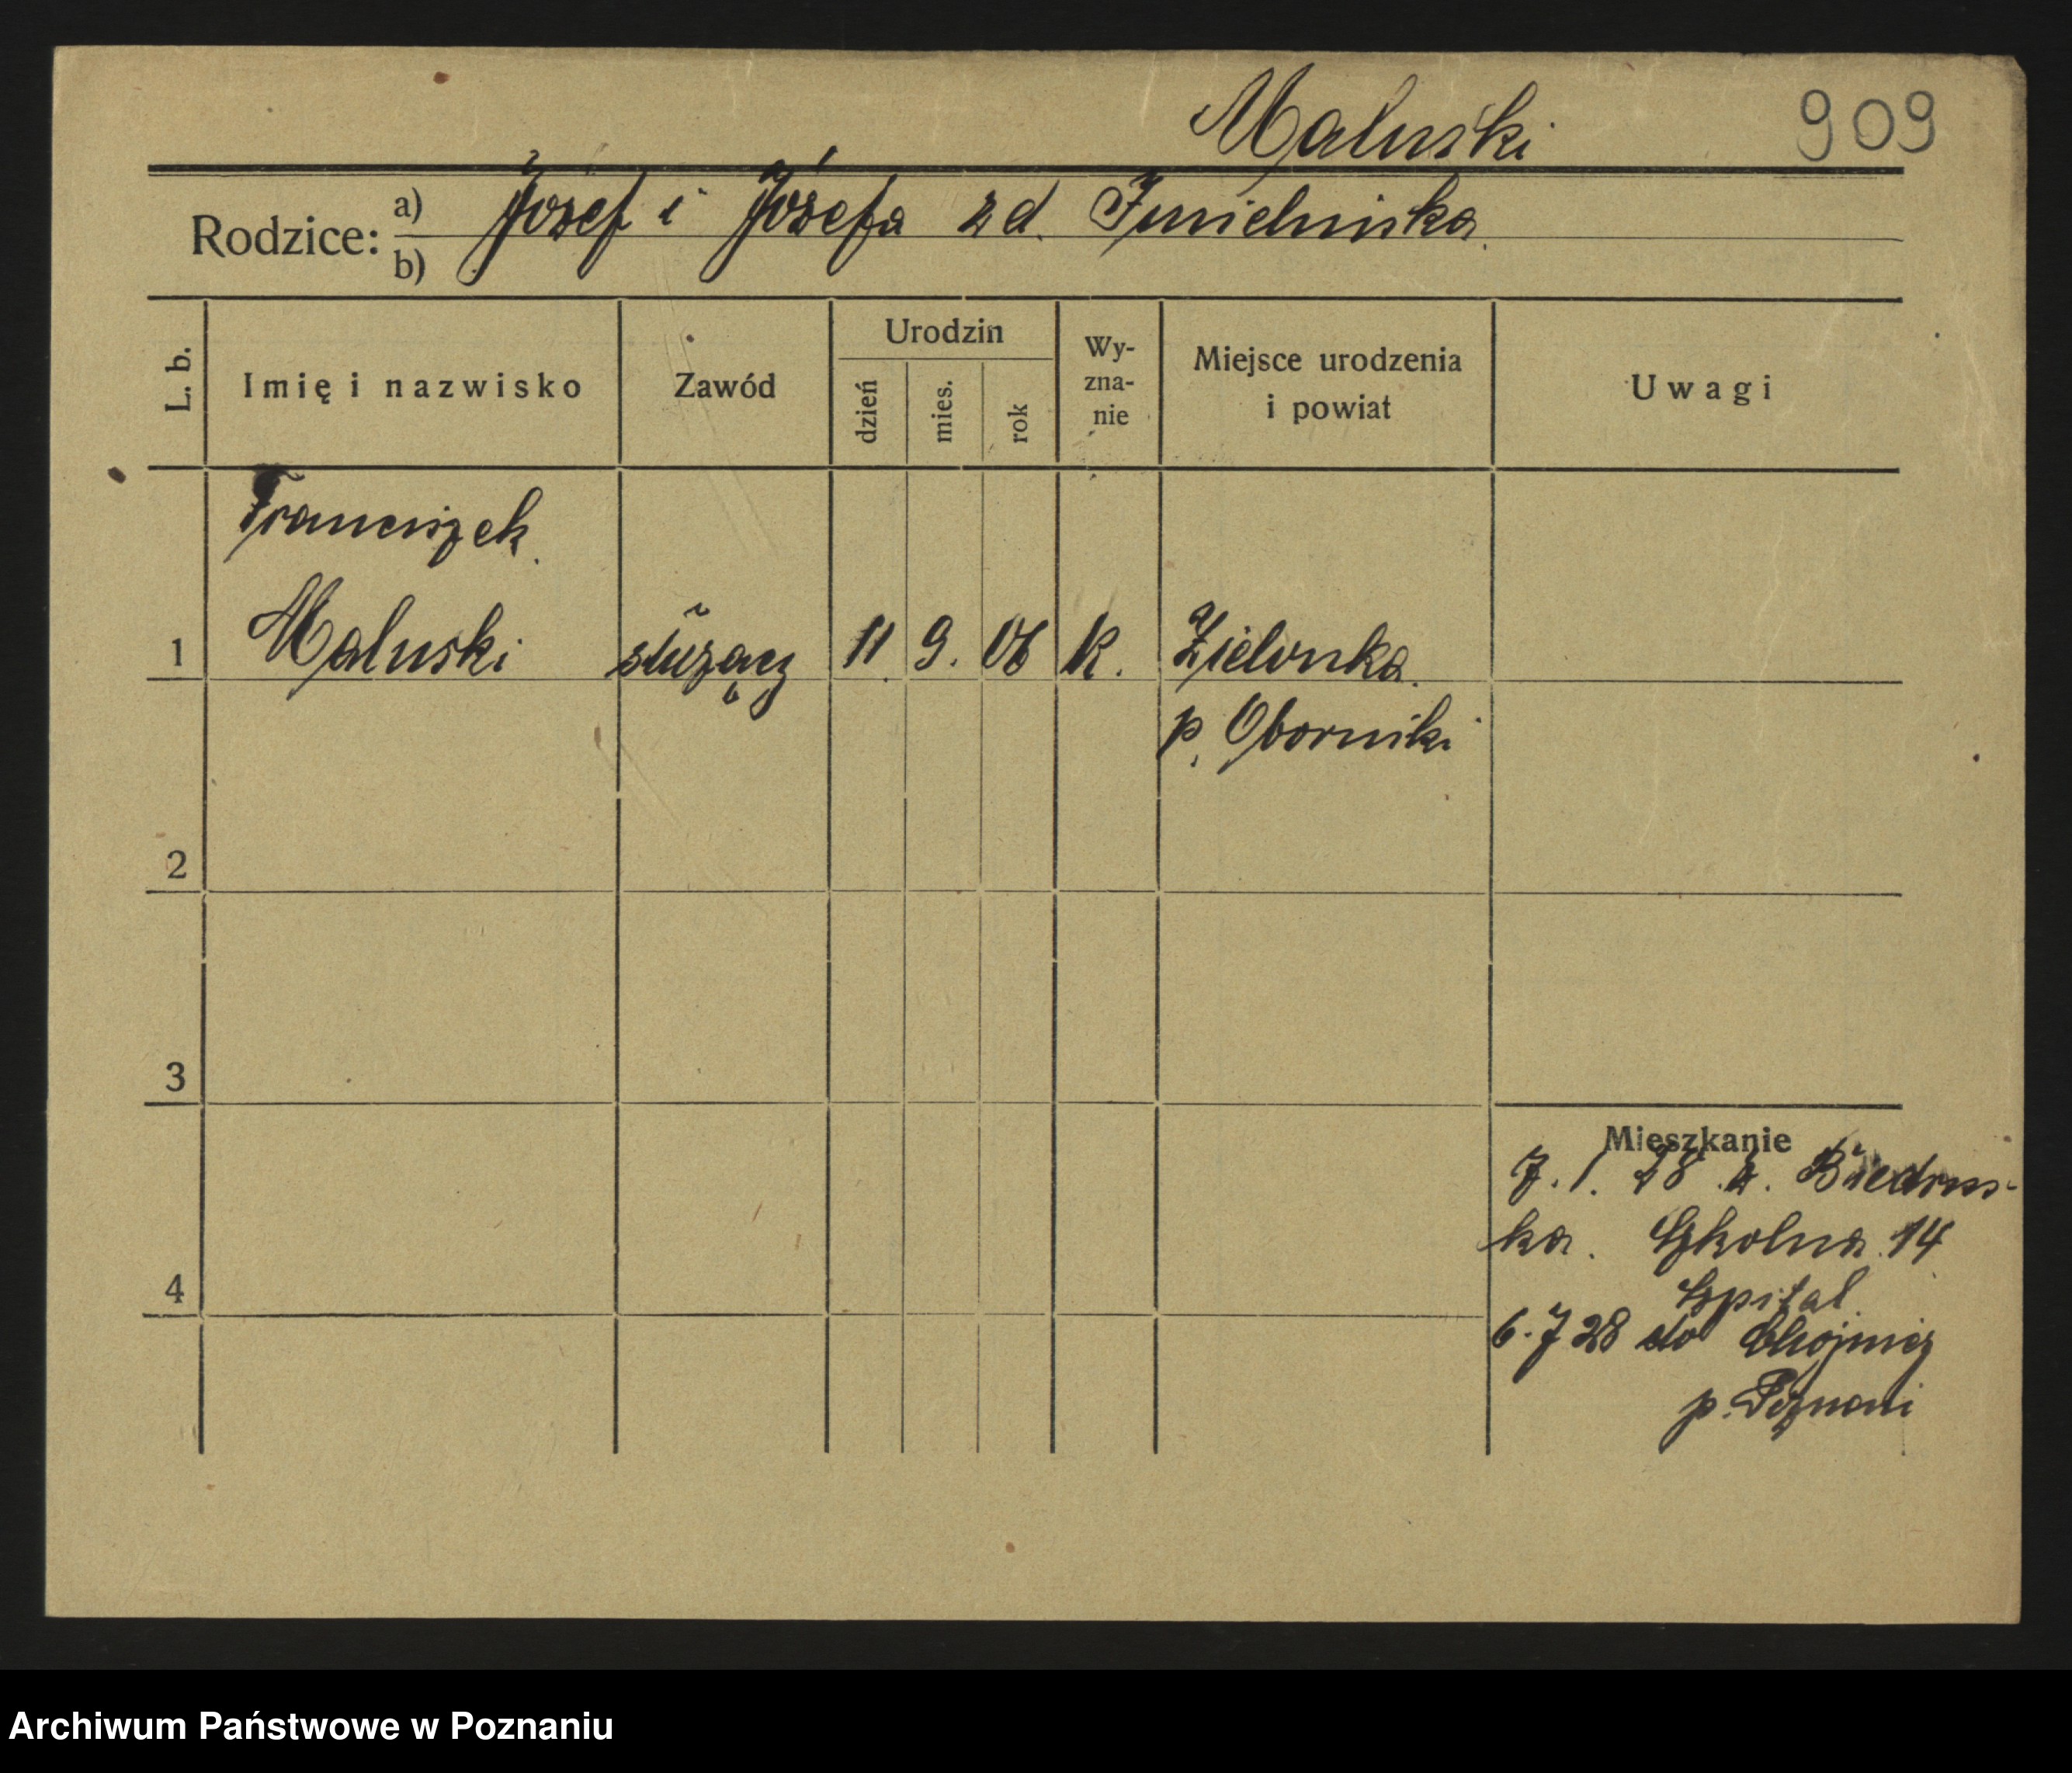 Maluski 909
Rodzice: a) Józef i Józefa zd. Imielniska.
b)
L. b. Imię i nazwisko Zawód Urodzin dzień mies. rok Wy-zna-nie Miejsce urodzenia i powiat Uwagi
Franciszek
1 Maluski służący 11 9. 06 k. Zielonka.
p. Oborniki
2
3
Mieszkanie
7. 1. 28 z. Biedrus-
ka. Szkolna 14
4 Szpital
6. 7 28 do Chojnicy
p. Poznań
Archiwum Państwowe w Poznaniu